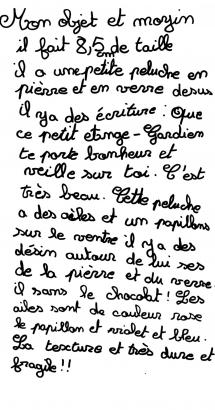 Mon objet et moyin
il fait 8,5 cm de taille
il a une petite peluche en
pièrre et en verre desus
il ya des écriture : Que
ce petit etange - Gardien
te porte bonheur et
veille sur toi. C'est
très beau. Cette peluche
a des ailes et un papillons
sur le ventre il ya des
désin autour de lui ses
de la pièrre et du verre
il sans le chocolat ! Les
ailes sont de couleur rose
le papillon et violet et bleu.
La texcture et très dure et
fragile !!